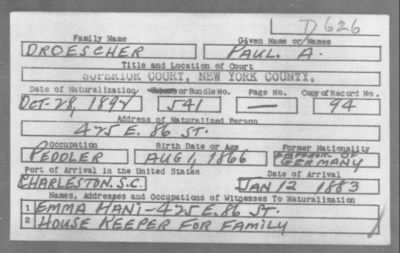 D626
Family Name Given Name or Names
DROESCHER PAUL. A.
Title and Location of Court
SUPERIOR COURT, NEW YORK COUNTY.
Date of Naturalization Volume or Bundle No. Page No. Copy of Record No.
OCT-28, 1897 541 — 94
Address of Naturalized Person
425 E. 86 ST.
Occupation Birth Date or Age Former Nationality
PEDDLER AUG 1, 1866 EMPEROR OF GERMANY
Port of Arrival in the United States Date of Arrival
CHARLESTON. S.C. JAN 12 1883
Names, Addresses and Occupations of Witnesses To Naturalization
1 EMMA HANI - 425 E. 86 ST.
2 HOUSE KEEPER FOR FAMILY